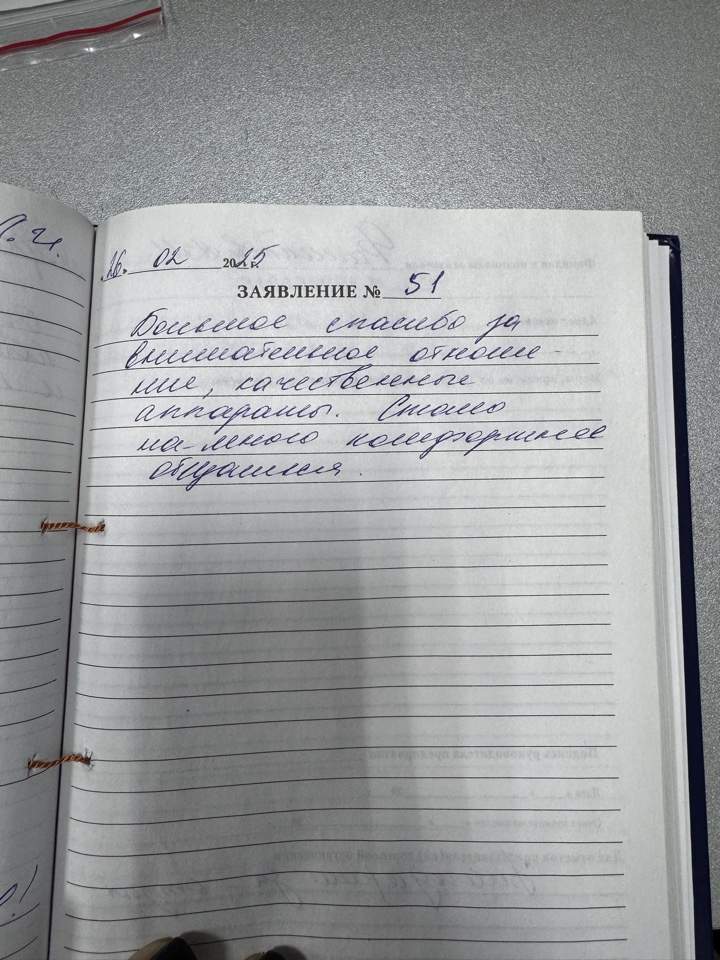 26. 02 2025 г.
ЗАЯВЛЕНИЕ № 51
Большое спасибо за
внимательное отноше-
ние, качественные
аппараты. Стало
на-много комфортнее
общаться.